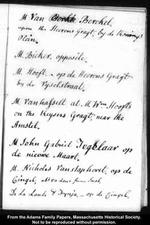 M Van Berckel
upon the Heerens Gragt, by the
Plein.
M. Bicker, opposite.
M. Hooft - op de Heerens Gragt
by de Vyzelstraat.
M Vanhasselt at M. Wm Hoofts
on the Keysers Gragt, near the
Amstel.
M John Gabriel Tegelaar op
de nieuwe Maart.
M. Nicholas Vanstaphorst, op de
Cingel,
De la Lande & Fynje, - op de Cingel.
From the Adams Family Papers, Massachusetts Historical Society.
Not to be reproduced without permission.